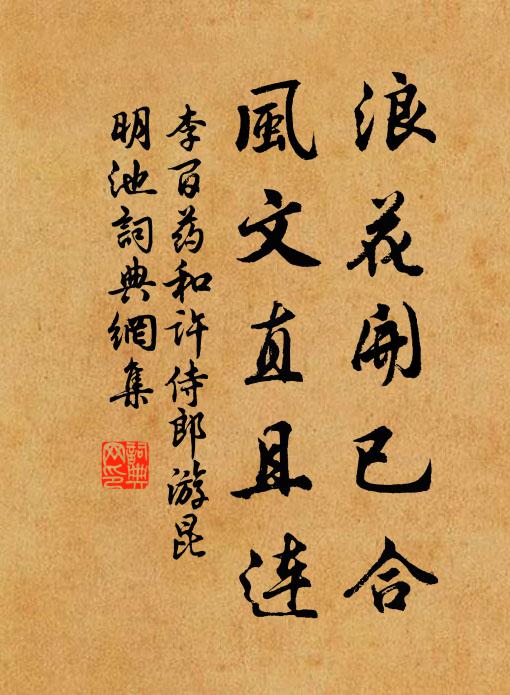 浪花開已合
風文直且連
李百药和许侍郎游昆
明池詞典網集
詞典
网印